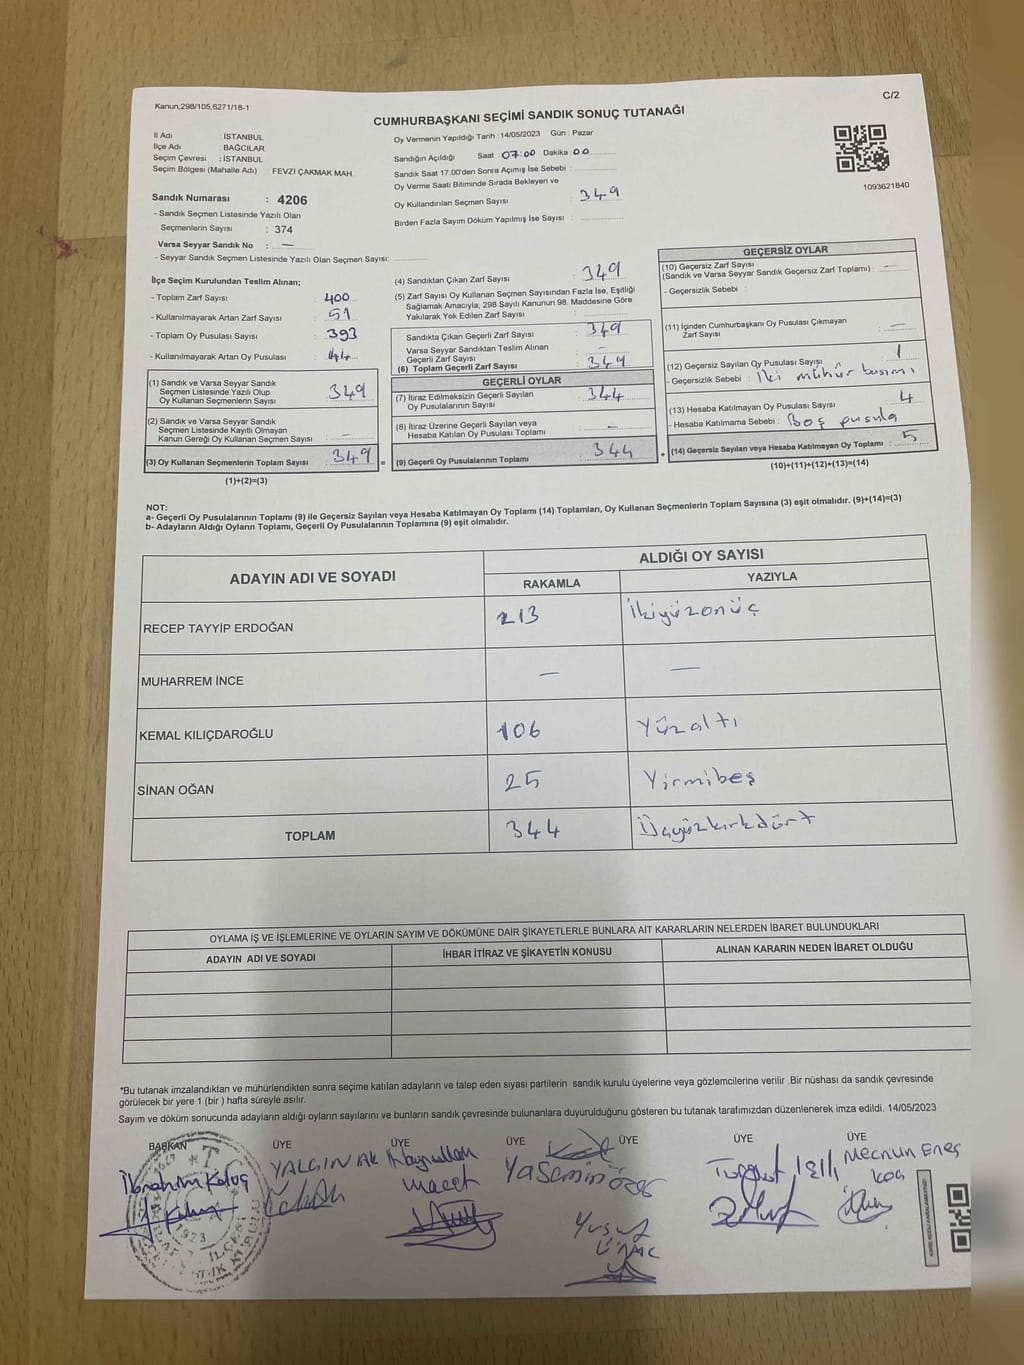 Kanun;298/105,6271/18-1
C/2
CUMHURBAŞKANI SEÇİMİ SANDIK SONUÇ TUTANAĞI
İl Adı : İSTANBUL
İlçe Adı : BAĞCILAR
Seçim Çevresi : İSTANBUL
Seçim Bölgesi (Mahalle Adı) : FEVZİ ÇAKMAK MAH.
Oy Vermenin Yapıldığı Tarih : 14/05/2023 Gün : Pazar
Sandığın Açıldığı Saat 07:00 Dakika : 00
Sandık Saat 17.00'den Sonra Açımış İse Sebebi :
Oy Verme Saati Bitiminde Sırada Bekleyen ve
Oy Kullandırılan Seçmen Sayısı : 349
Birden Fazla Sayım Döküm Yapılmış İse Sayısı :
1093621840
Sandık Numarası : 4206
- Sandık Seçmen Listesinde Yazılı Olan
Seçmenlerin Sayısı : 374
Varsa Seyyar Sandık No : —
- Seyyar Sandık Seçmen Listesinde Yazılı Olan Seçmen Sayısı:
İlçe Seçim Kurulundan Teslim Alınan;
- Toplam Zarf Sayısı : 400
- Kullanılmayarak Artan Zarf Sayısı : 51
- Toplam Oy Pusulası Sayısı : 393
- Kullanılmayarak Artan Oy Pusulası : 44
(1) Sandık ve Varsa Seyyar Sandık
Seçmen Listesinde Yazılı Olup
Oy Kullanan Seçmenlerin Sayısı : 349
(2) Sandık ve Varsa Seyyar Sandık
Seçmen Listesinde Kayıtlı Olmayan
Kanun Gereği Oy Kullanan Seçmen Sayısı : —
(3) Oy Kullanan Seçmenlerin Toplam Sayısı : 349
(1)+(2)=(3)
(4) Sandıktan Çıkan Zarf Sayısı : 349
(5) Zarf Sayısı Oy Kullanan Seçmen Sayısından Fazla İse, Eşitliği
Sağlamak Amacıyla; 298 Sayılı Kanunun 98. Maddesine Göre
Yakılarak Yok Edilen Zarf Sayısı :
Sandıkta Çıkan Geçerli Zarf Sayısı : 349
Varsa Seyyar Sandıktan Teslim Alınan
Geçerli Zarf Sayısı : —
(6) Toplam Geçerli Zarf Sayısı : 349
GEÇERLİ OYLAR
(7) İtiraz Edilmeksizin Geçerli Sayılan
Oy Pusulalarının Sayısı : 344
(8) İtiraz Üzerine Geçerli Sayılan veya
Hesaba Katılan Oy Pusulası Toplamı : —
= (9) Geçerli Oy Pusulalarının Toplamı : 344
GEÇERSİZ OYLAR
(10) Geçersiz Zarf Sayısı
(Sandık ve Varsa Seyyar Sandık Geçersiz Zarf Toplamı) : —
- Geçersizlik Sebebi :
(11) İçinden Cumhurbaşkanı Oy Pusulası Çıkmayan
Zarf Sayısı : —
(12) Geçersiz Sayılan Oy Pusulası Sayısı : 1
- Geçersizlik Sebebi : İki mühür basımı
(13) Hesaba Katılmayan Oy Pusulası Sayısı : 4
- Hesaba Katılmama Sebebi : Boş pusula
+ (14) Geçersiz Sayılan veya Hesaba Katılmayan Oy Toplamı : 5
(10)+(11)+(12)+(13)=(14)
NOT:
a- Geçerli Oy Pusulalarının Toplamı (9) ile Geçersiz Sayılan veya Hesaba Katılmayan Oy Toplamı (14) Toplamları, Oy Kullanan Seçmenlerin Toplam Sayısına (3) eşit olmalıdır. (9)+(14)=(3)
b- Adayların Aldığı Oyların Toplamı, Geçerli Oy Pusulalarının Toplamına (9) eşit olmalıdır.
ADAYIN ADI VE SOYADI
ALDIĞI OY SAYISI
RAKAMLA YAZIYLA
RECEP TAYYİP ERDOĞAN 213 İkiyüzonüç
MUHARREM İNCE — —
KEMAL KILIÇDAROĞLU 106 Yüzaltı
SİNAN OĞAN 25 Yirmibeş
TOPLAM 344 Üçyüzkırkdört
OYLAMA İŞ VE İŞLEMLERİNE VE OYLARIN SAYIM VE DÖKÜMÜNE DAİR ŞİKAYETLERLE BUNLARA AİT KARARLARIN NELERDEN İBARET BULUNDUKLARI
ADAYIN ADI VE SOYADI İHBAR İTİRAZ VE ŞİKAYETİN KONUSU ALINAN KARARIN NEDEN İBARET OLDUĞU
*Bu tutanak imzalandıktan ve mühürlendikten sonra seçime katılan adayların ve talep eden siyasi partilerin sandık kurulu üyelerine veya gözlemcilerine verilir .Bir nüshası da sandık çevresinde
görülecek bir yere 1 (bir ) hafta süreyle asılır.
Sayım ve döküm sonucunda adayların aldığı oyların sayılarını ve bunların sandık çevresinde bulunanlara duyurulduğunu gösteren bu tutanak tarafımızdan düzenlenerek imza edildi. 14/05/2023
BAŞKAN ÜYE ÜYE ÜYE ÜYE ÜYE ÜYE
İbrahim YALGIN AK Hayrullah Yasemin Özer Turgut Mecnun Enes
Koç
Yusuf